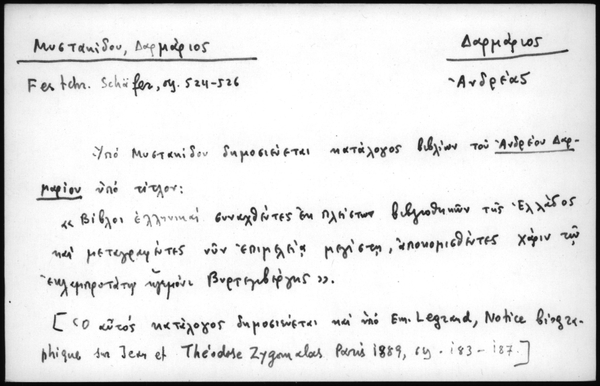 Μυστακίδου, Δαρμάριος
Δαρμάριος
Festchr. Schäfer, σy. 524-526
Ἀνδρέας
Ὑπό Μυστακίδου δημοσιεύεται κατάλογος βιβλίων τοῦ Ἀνδρέου Δαρ-
μαρίου ὑπό τίτλον:
« Βίβλοι ἑλληνικαί συναχθέντες ἐκ πλείστων βιβλιοθηκῶν τῆς Ἑλλάδος
καί μεταγραφέντες νῦν ἐπιμελείᾳ μεγίστῃ, ἀποκομισθέντες χάριν τῷ
ἐκλαμπροτάτῳ ἡγεμόνι Βυρτεμβέργης ».
[Ὁ αὐτός κατάλογος δημοσιεύεται καί ὑπό Em. Legrand, Notice biogra-
phique sur Jean et Théodose Zygomalas Paris 1889, σy. 183-187.]